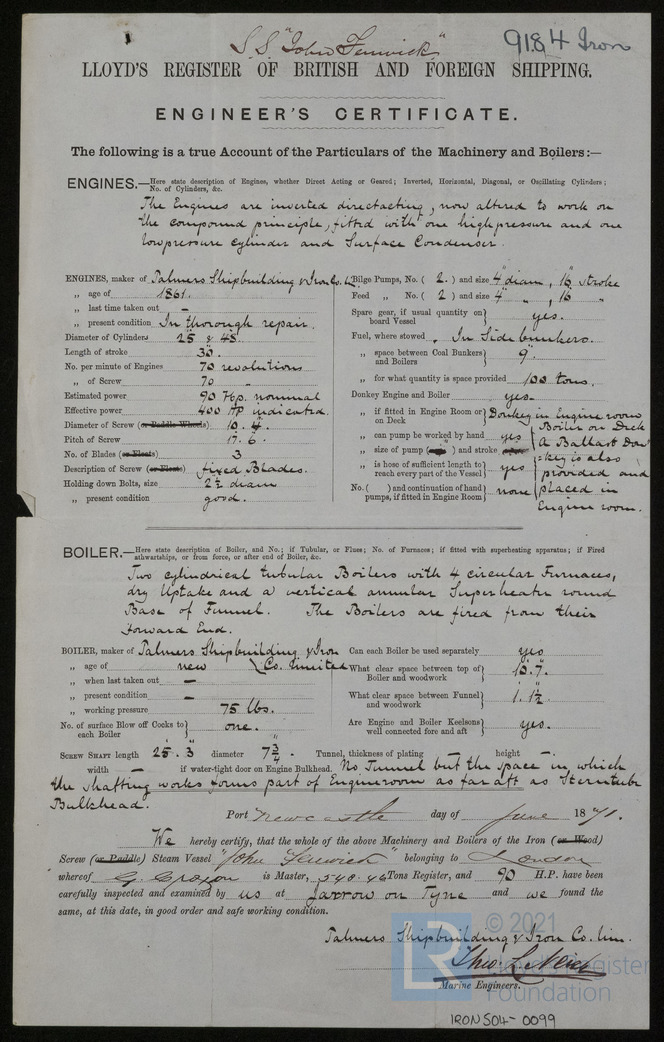 S.S. "John Fenwick"
9184 Iron
LLOYD'S REGISTER OF BRITISH AND FOREIGN SHIPPING.
ENGINEER'S CERTIFICATE.
The following is a true Account of the Particulars of the Machinery and Boilers:—
ENGINES.—Here state description of Engines, whether Direct Acting or Geared; Inverted, Horizontal, Diagonal, or Oscillating Cylinders;
No. of Cylinders, &c.
The Engines are inverted directacting, now altered to work on
the compound principle, fitted with one highpressure and one
lowpressure cylinder and Surface Condenser.
ENGINES, maker of Palmers Shipbuilding & Iron Co. L
„ age of 1861.
„ last time taken out –
„ present condition In thorough repair.
Diameter of Cylinders 25 & 48.
Length of stroke 30.
No. per minute of Engines 70 revolutions
„ of Screw 70 „
Estimated power 90 Hp. nominal
Effective power 400 HP indicated.
Diameter of Screw (or Paddle Wheels) 10. 4.
Pitch of Screw 17. 6.
No. of Blades (or Floats) 3
Description of Screw (or Floats) fixed Blades.
Holding down Bolts, size 2½ diam
„ present condition good.
Bilge Pumps, No. ( 2. ) and size 4" diam, 16" stroke
Feed „ No. ( 2 ) and size 4" „ , 16 „
Spare gear, if usual quantity on board Vessel } yes.
Fuel, where stowed, In Side bunkers.
„ space between Coal Bunkers and Boilers } 9".
„ for what quantity is space provided 100 tons.
Donkey Engine and Boiler yes.
„ if fitted in Engine Room or on Deck } Donkey in Engine room
Boiler on Deck
„ can pump be worked by hand yes
„ size of pump ( ) and stroke
„ is hose of sufficient length to reach every part of the Vessel } yes
No. ( ) and continuation of hand pumps, if fitted in Engine Room } none
A Ballast Don
=key is also
provided and
placed in
Engine room.
BOILER.—Here state description of Boiler, and No.; if Tubular, or Flues; No. of Furnaces; if fitted with superheating apparatus; if Fired
athwartships, or from force, or after end of Boiler, &c.
Two cylindrical tubular Boilers with 4 circular Furnaces,
dry Uptake and a vertical annular Superheater round
Base of Funnel. The Boilers are fired from their
Forward End.
BOILER, maker of Palmers Shipbuilding & Iron
„ age of new Co. Limited
„ when last taken out –
„ present condition –
„ working pressure 75 lbs.
No. of surface Blow off Cocks to each Boiler } one.
Can each Boiler be used separately yes
What clear space between top of Boiler and woodwork } 10. 7.
What clear space between Funnel and woodwork } 1. 1½
Are Engine and Boiler Keelsons well connected fore and aft } yes.
SCREW SHAFT length 25. 3 diameter 7¾. Tunnel, thickness of plating height –
width – if water-tight door on Engine Bulkhead. No Tunnel but the space in which
the shafting works forms part of Engineroom as far aft as Sterntube
Bulkhead.
Port Newcastle day of June 1871.
We hereby certify, that the whole of the above Machinery and Boilers of the Iron (or Wood)
Screw (or Paddle) Steam Vessel "John Fenwick belonging to London
whereof G. Croxon is Master, 548.46 Tons Register, and 90 H.P. have been
carefully inspected and examined by us at Jarrow on Tyne and we found the
same, at this date, in good order and safe working condition.
Palmers Shipbuilding & Iron Co. lim.
Marine Engineers.
© 2021
LR
Lloyd's Register
Foundation
IRON504-0099